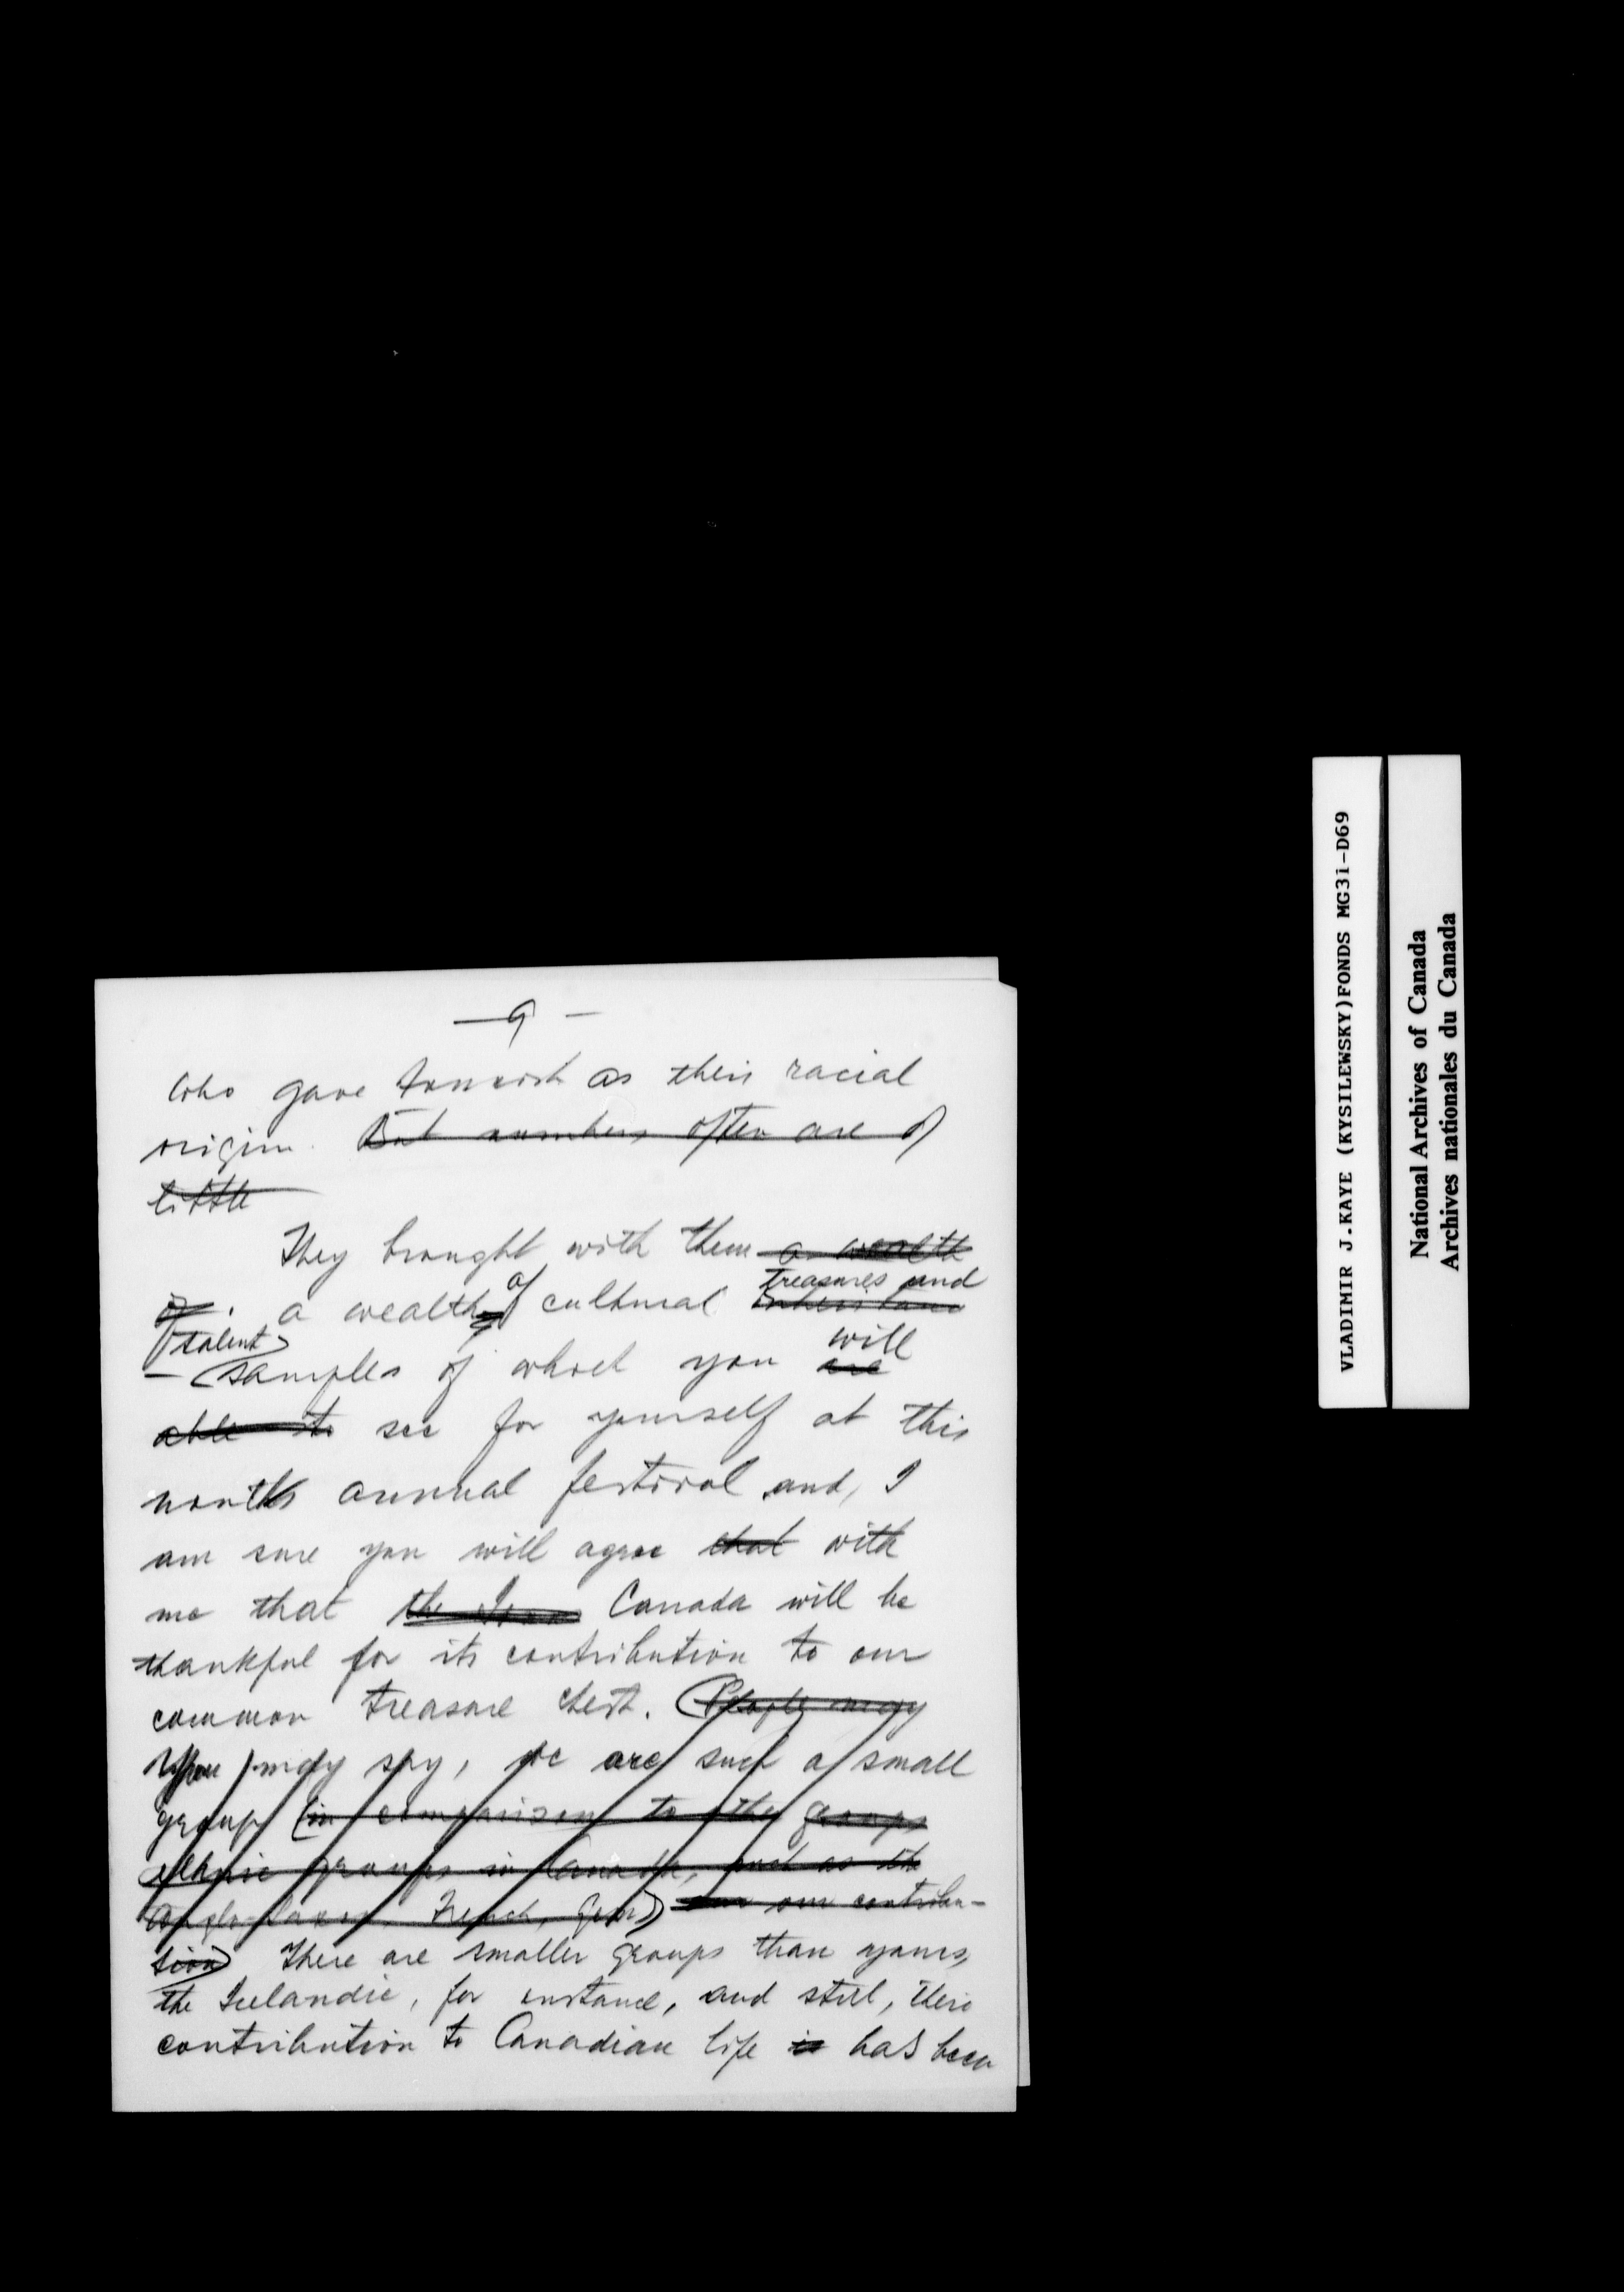 — 9 —
who gave Finnish as their racial
origin. But numbers often are of
little
They brought with them a wealth
of a wealth of cultural inheritance treasures and
talent
— samples of what you are will
able to see for yourself at this
month's annual festival and, I
am sure you will agree that with
me that the Canada will be
thankful for its contribution to our
common treasure chest. (People may
You may say, we are such a small
group (in comparison to the groups
ethnic groups in Canada, such as the
Anglo-Saxon, French, Germ) our contribu-
tion) There are smaller groups than yours,
the Icelandic, for instance, and still, their
contribution to Canadian life is has been
VLADIMIR J.KAYE (KYSILEWSKY)FONDS MG31-D69
National Archives of Canada
Archives nationales du Canada